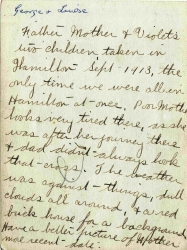 George & Louise
Father Mother & Violet's
two children taken in
Hamilton Sept- 1913, the
only time we were all in
Hamilton at-once. Poor Mother
looks very tired there, as she
was after her journey there
& dad didn't-always look
that-cross. The weather
was against-things, dull
clouds all around, & a red
brick house for a background.
Have a better picture of Mother
more recent-date.